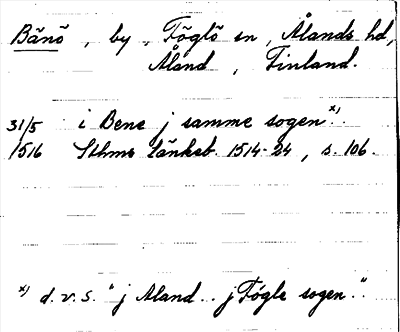 Bänö, by, Föglö sn, Ålands hd,
Åland, Finland.
31/5 i Bene j samme sogen x).
1516 Sthms tänkeb. 1514-24, s. 106.
x) d.v.s. "j Aland.. j Fögle sogen."